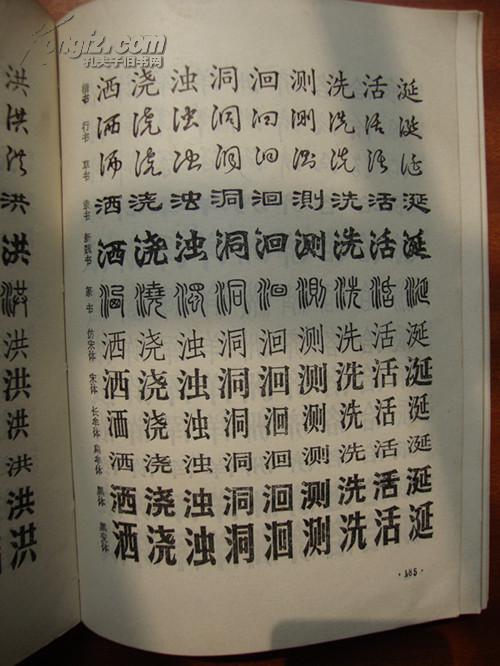 kongfz.com
孔夫子旧书网
洪
洪
洪
洪
洪
洪
洪
洪
洪
洪
洪
洪
楷书 洒 浇 浊 洞 洄 测 洗 活 涎
行书 洒 浇 浊 洞 洄 测 洗 活 涎
草书 洒 浇 浊 洞 洄 测 洗 活 涎
隶书 洒 浇 浊 洞 洄 測 洗 活 涎
新魏书 洒 浇 浊 洞 洄 测 洗 活 涎
篆书 洒 澆 濁 洞 洄 測 洗 活 涎
仿宋体 洒 浇 浊 洞 洄 测 洗 活 涎
宋体 洒 浇 浊 洞 洄 测 洗 活 涎
长牟体 洒 浇 浊 洞 洄 测 洗 活 涎
扁牟体 洒 浇 浊 洞 洄 测 洗 活 涎
黑体 洒 浇 浊 洞 洄 测 洗 活 涎
黑变体 洒 浇 浊 洞 洄 测 洗 活 涎
·185·